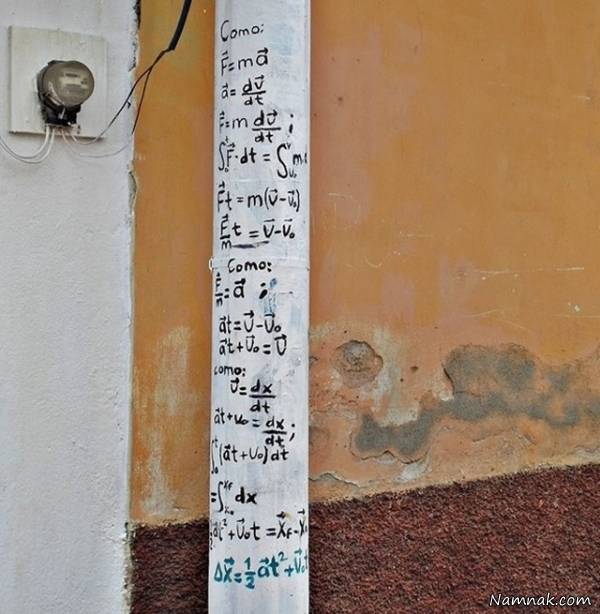 Como:
F⃗=ma⃗
a⃗=dv⃗/dt
F⃗=m dv⃗/dt;
∫₀ᵗF⃗·dt=∫ᵥ₀ᵛm
F⃗t=m(v⃗-v⃗₀)
F⃗/m t=v⃗-v⃗₀
Como:
F⃗/m=a⃗;
a⃗t=v⃗-v⃗₀
a⃗t+v⃗₀=v⃗
como:
v⃗=dx/dt
a⃗t+v₀=dx/dt;
∫₀ᵗ(a⃗t+v₀)dt
=∫ₓ₀ˣᶠdx
½a⃗t²+v⃗₀t=x⃗F-x⃗
Δx⃗=½a⃗t²+v⃗₀t
Namnak.com